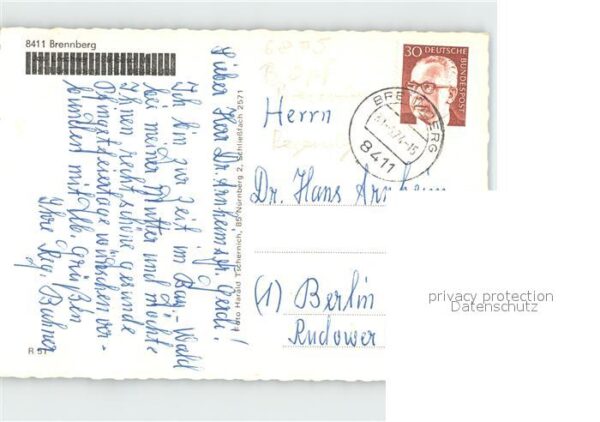 8411 Brennberg
Lieber Herr Dr. Arnheim, sehr
Ich bin zur Zeit im Bay-Wald
bei meiner Mutter und möchte
Ihnen recht schöne gesunde
Pfingstfeiertage wünschen ver-
bunden mit lb. Grüßen
Ihre Reg. Buhner
R 51
Foto Harald Tschernich, 85 Nürnberg 2, Schließfach 2571
30 DEUTSCHE BUNDESPOST
BRENNBERG
8411
Herrn
Dr. Hans Arnheim
(1) Berlin
Rudower
privacy protection
Datenschutz